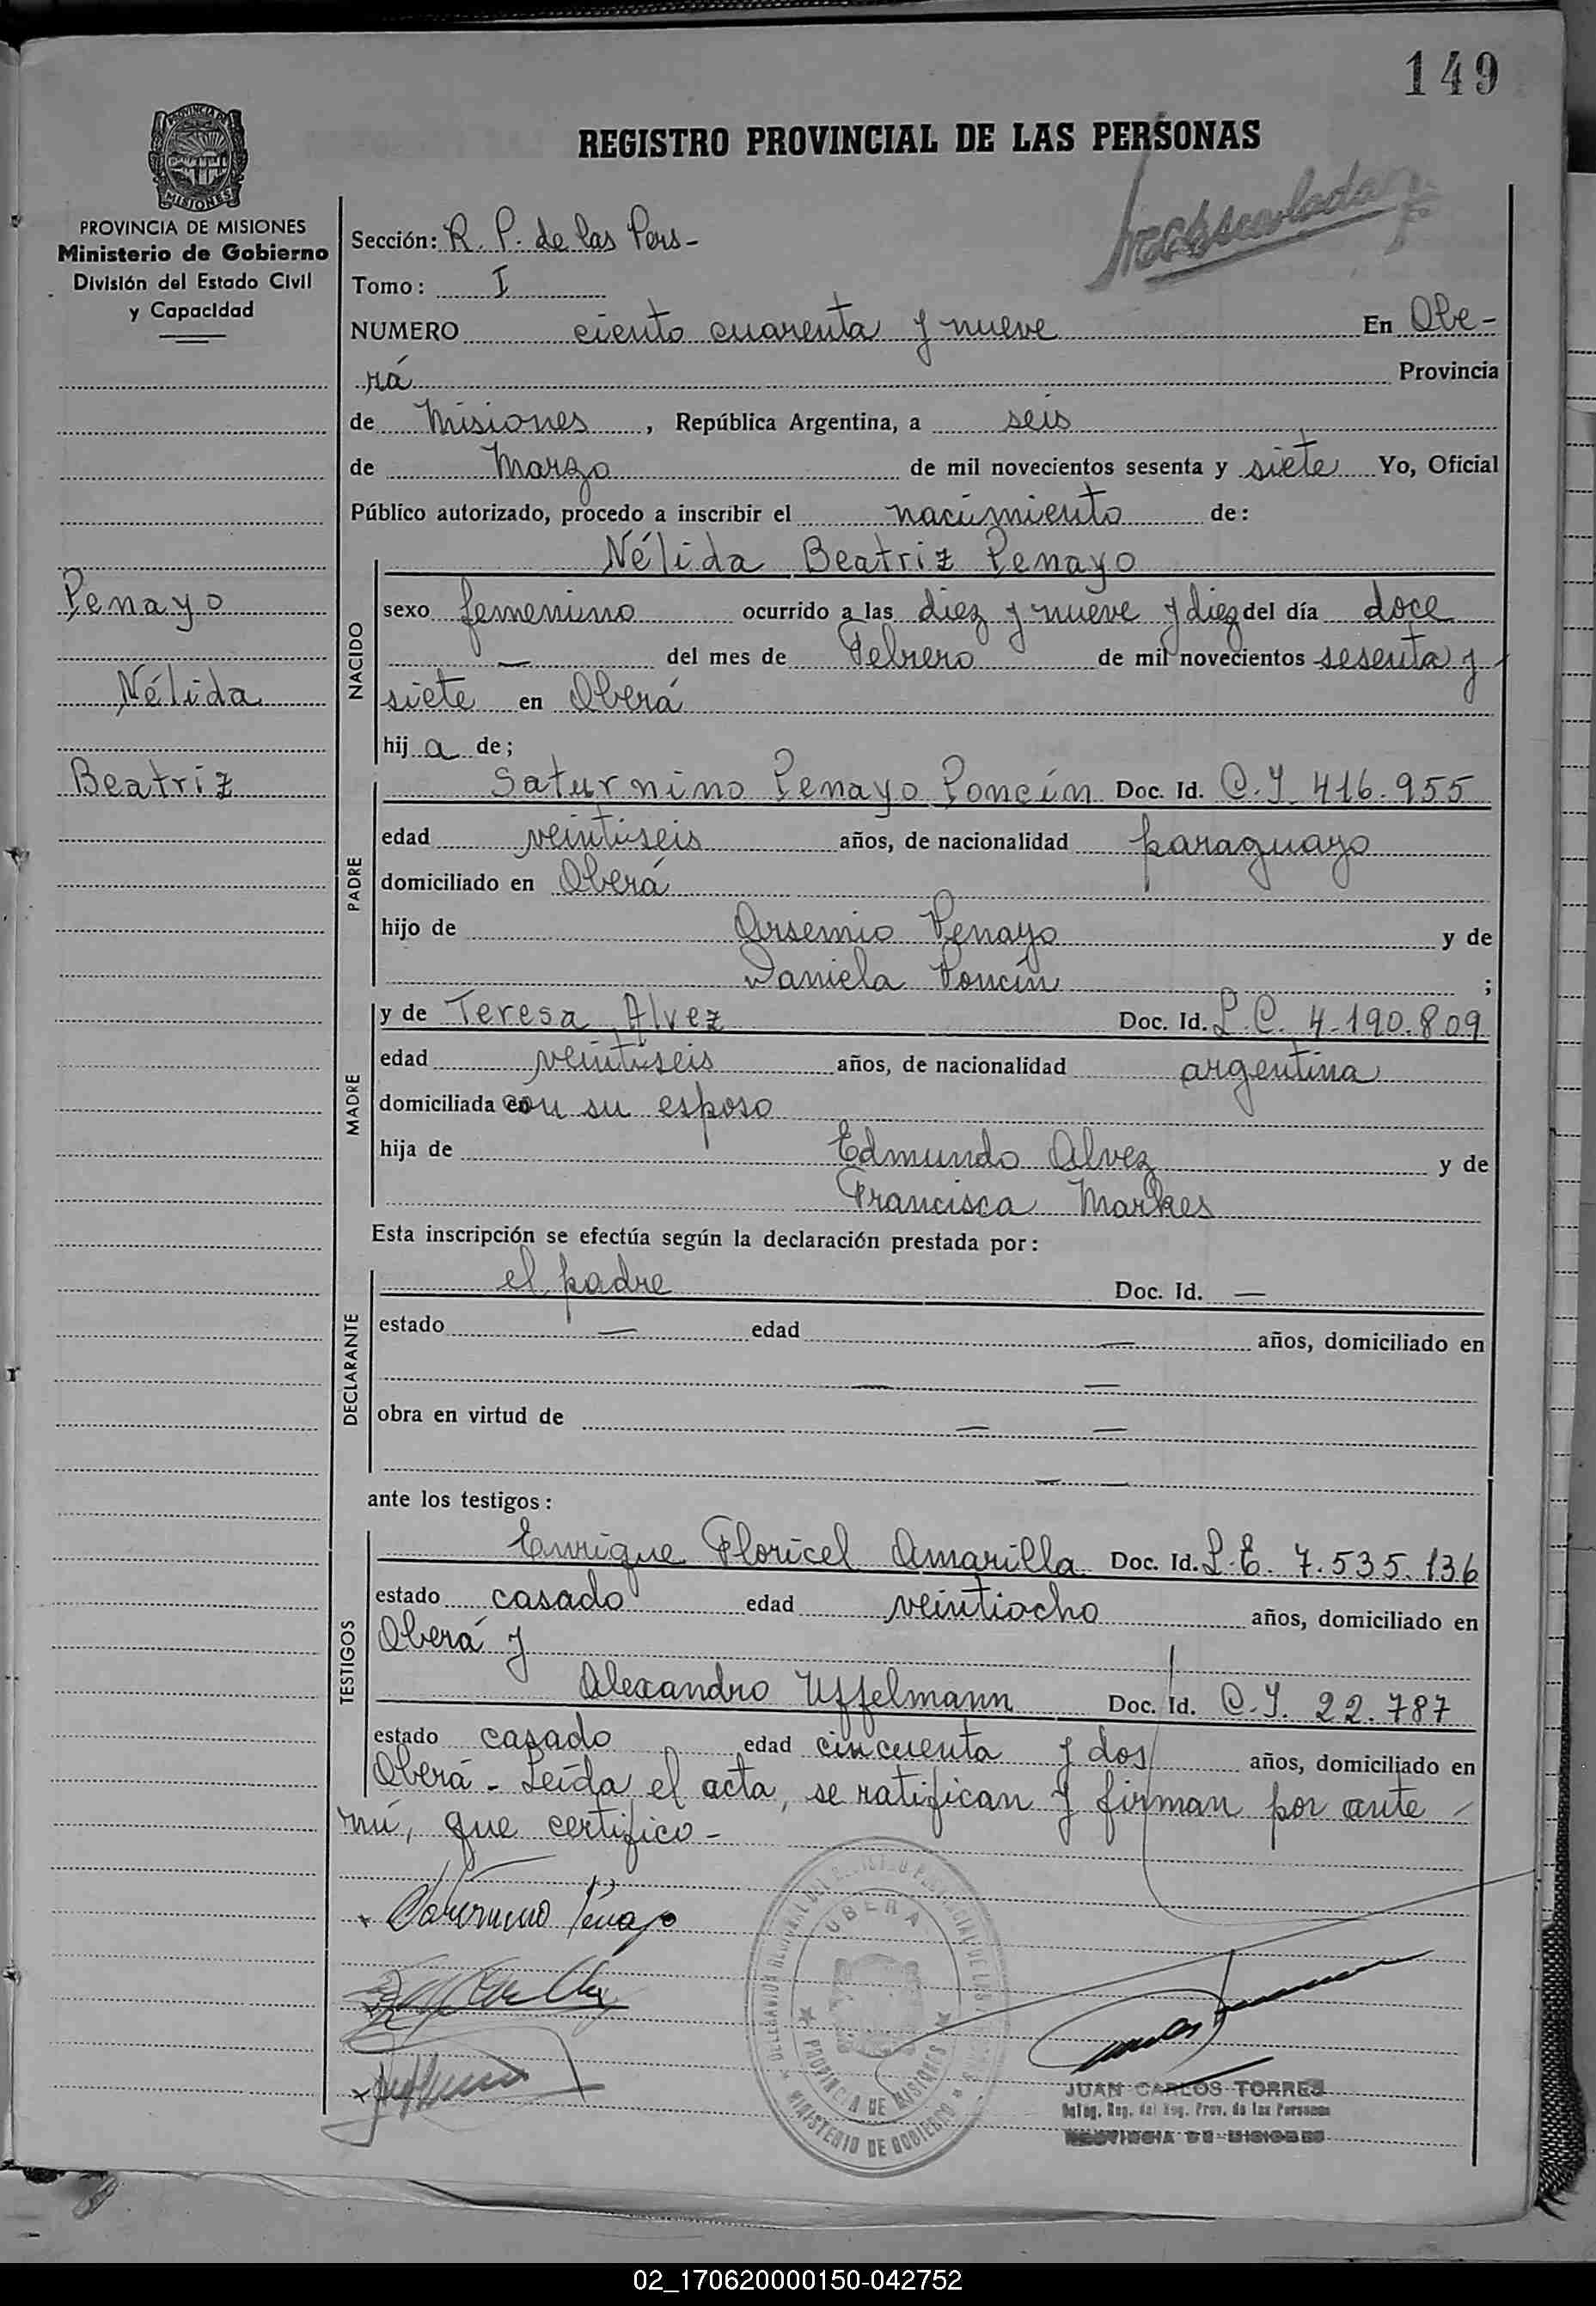 149
REGISTRO PROVINCIAL DE LAS PERSONAS
PROVINCIA DE MISIONES
Ministerio de Gobierno
División del Estado Civil
y Capacidad
Sección: R. P. de las Pers-
Tomo: I
NUMERO ciento cuarenta y nueve En Obe-
rá Provincia
de Misiones, República Argentina, a seis
de Marzo de mil novecientos sesenta y siete Yo, Oficial
Público autorizado, procedo a inscribir el nacimiento de:
Nélida Beatriz Penayo
Penayo
Nélida
Beatriz
NACIDO
sexo femenino ocurrido a las diez y nueve y diez del día doce
— del mes de Febrero de mil novecientos sesenta y
siete en Oberá
hij a de;
PADRE
Saturnino Penayo Poncín Doc. Id. C.I. 416.955
edad veintiseis años, de nacionalidad paraguayo
domiciliado en Oberá
hijo de Arsenio Penayo y de
Daniela Poncín ;
MADRE
y de Teresa Alvez Doc. Id. L.C. 4.190.809
edad veintiseis años, de nacionalidad argentina
domiciliada con su esposo
hija de Edmundo Alvez y de
Francisca Markes
Esta inscripción se efectúa según la declaración prestada por:
DECLARANTE
el padre Doc. Id. —
estado — edad — años, domiciliado en
— —
obra en virtud de — —
— —
ante los testigos:
TESTIGOS
Enrique Floricel Amarilla Doc. Id. L.E. 7.535.136
estado casado edad veintiocho años, domiciliado en
Oberá y
Alexandro Uffelmann Doc. Id. C.I. 22.787
estado casado edad cincuenta y dos años, domiciliado en
Oberá - Leída el acta, se ratifican y firman por ante
mí, que certifico -
Saturnino Penayo
OBERA
PROVINCIA DE MISIONES
MINISTERIO DE GOBIERNO
JUAN CARLOS TORRES
Deleg. Reg. del Reg. Prov. de las Personas
PROVINCIA DE MISIONES
02_170620000150-042752